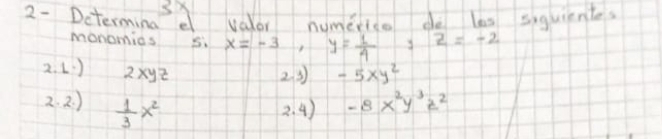 3x
2- Determina el valor numérico de los siguientes
monomios si x = -3 , y = 1/4 ; z = -2
2.1.) 2xyz 2.3) - 5xy²
2.2.) 1/3 x² 2.4) -8 x²y³z²